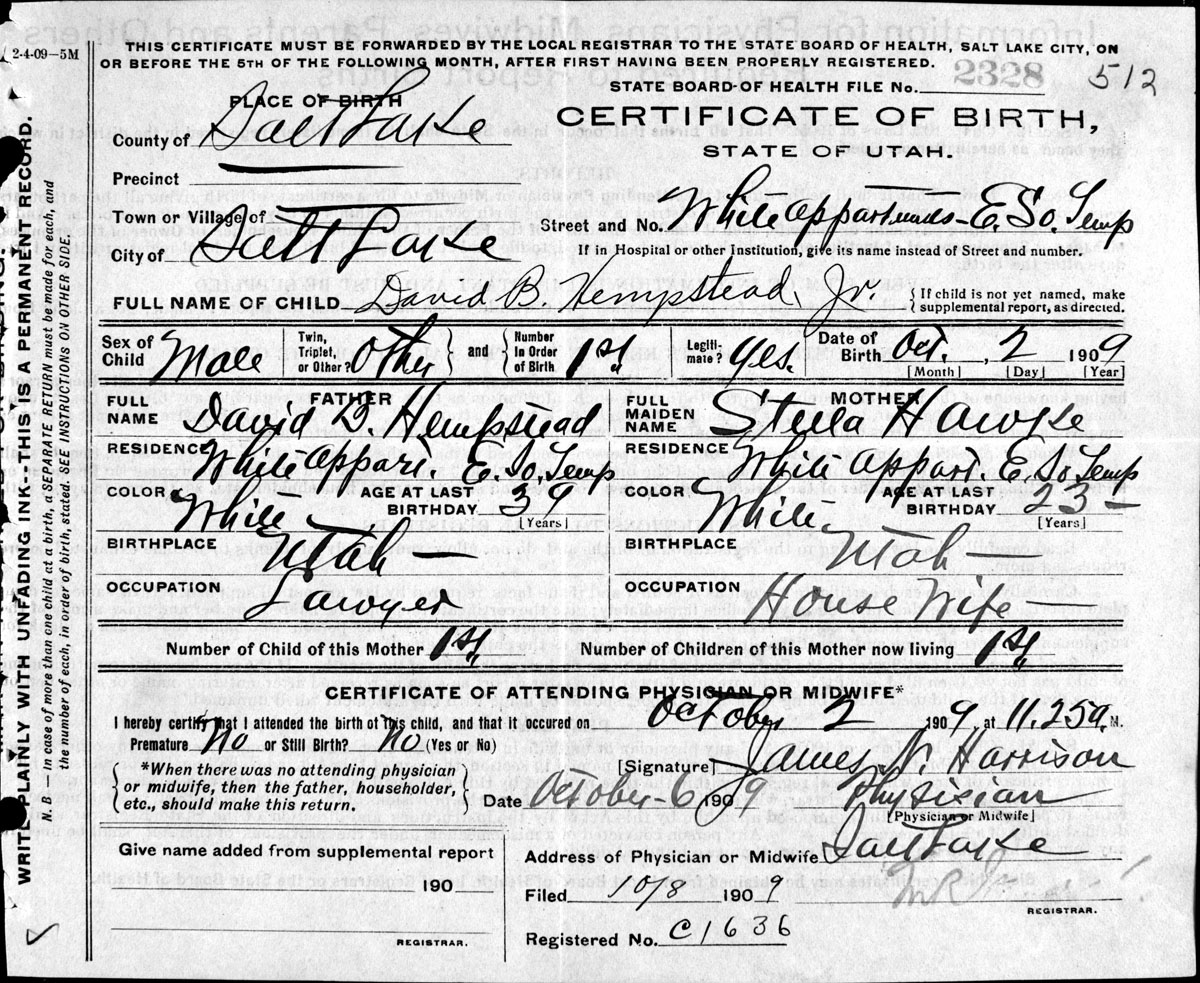 2-4-09—5M
THIS CERTIFICATE MUST BE FORWARDED BY THE LOCAL REGISTRAR TO THE STATE BOARD OF HEALTH, SALT LAKE CITY, ON
OR BEFORE THE 5TH OF THE FOLLOWING MONTH, AFTER FIRST HAVING BEEN PROPERLY REGISTERED.
STATE BOARD OF HEALTH FILE No. 2328 512
PLACE OF BIRTH
CERTIFICATE OF BIRTH,
STATE OF UTAH.
County of Salt Lake
Precinct
Town or Village of
City of Salt Lake
Street and No. White Appartments - E. So. Temp
If in Hospital or other Institution, give its name instead of Street and number.
FULL NAME OF CHILD David B. Hempstead Jr. {If child is not yet named, make supplemental report, as directed.
Sex of Child Male Twin, Triplet, or Other? Other and Number in Order of Birth 1st Legitimate? Yes. Date of Birth Oct. 2 1909
[Month] [Day] [Year]
FATHER MOTHER
FULL NAME David B. Hempstead FULL MAIDEN NAME Stella Hawke
RESIDENCE White Appart. E. So. Temp RESIDENCE White Appart. E. So. Temp
COLOR White AGE AT LAST BIRTHDAY 39 [Years] COLOR White. AGE AT LAST BIRTHDAY 23 - [Years]
BIRTHPLACE Utah BIRTHPLACE Utah -
OCCUPATION Lawyer OCCUPATION House Wife
Number of Child of this Mother 1st Number of Children of this Mother now living 1st
CERTIFICATE OF ATTENDING PHYSICIAN OR MIDWIFE*
I hereby certify that I attended the birth of this child, and that it occured on October 2 1909, at 11.25 a. M.
Premature No or Still Birth? No (Yes or No)
[Signature] James N. Harrison
*When there was no attending physician or midwife, then the father, householder, etc., should make this return.
Date October - 6 1909 Physician
[Physician or Midwife]
Give name added from supplemental report
190
REGISTRAR.
Address of Physician or Midwife Salt Lake
Filed 10/8 1909
REGISTRAR.
Registered No. C1636
WRITE PLAINLY WITH UNFADING INK--THIS IS A PERMANENT RECORD.
N. B.—In case of more than one child at a birth, a SEPARATE RETURN must be made for each, and
the number of each, in order of birth, stated. SEE INSTRUCTIONS ON OTHER SIDE.